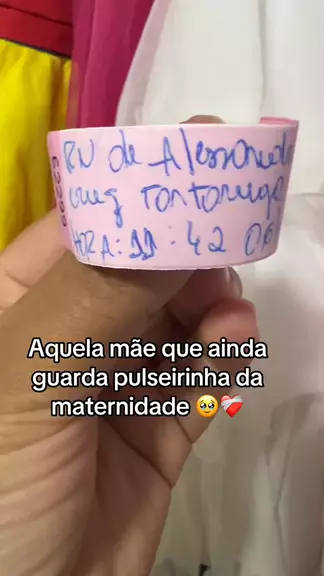 RN de Alessandra
HORA: 11:42
Aquela mãe que ainda
guarda pulseirinha da
maternidade 🥹❤️‍🩹